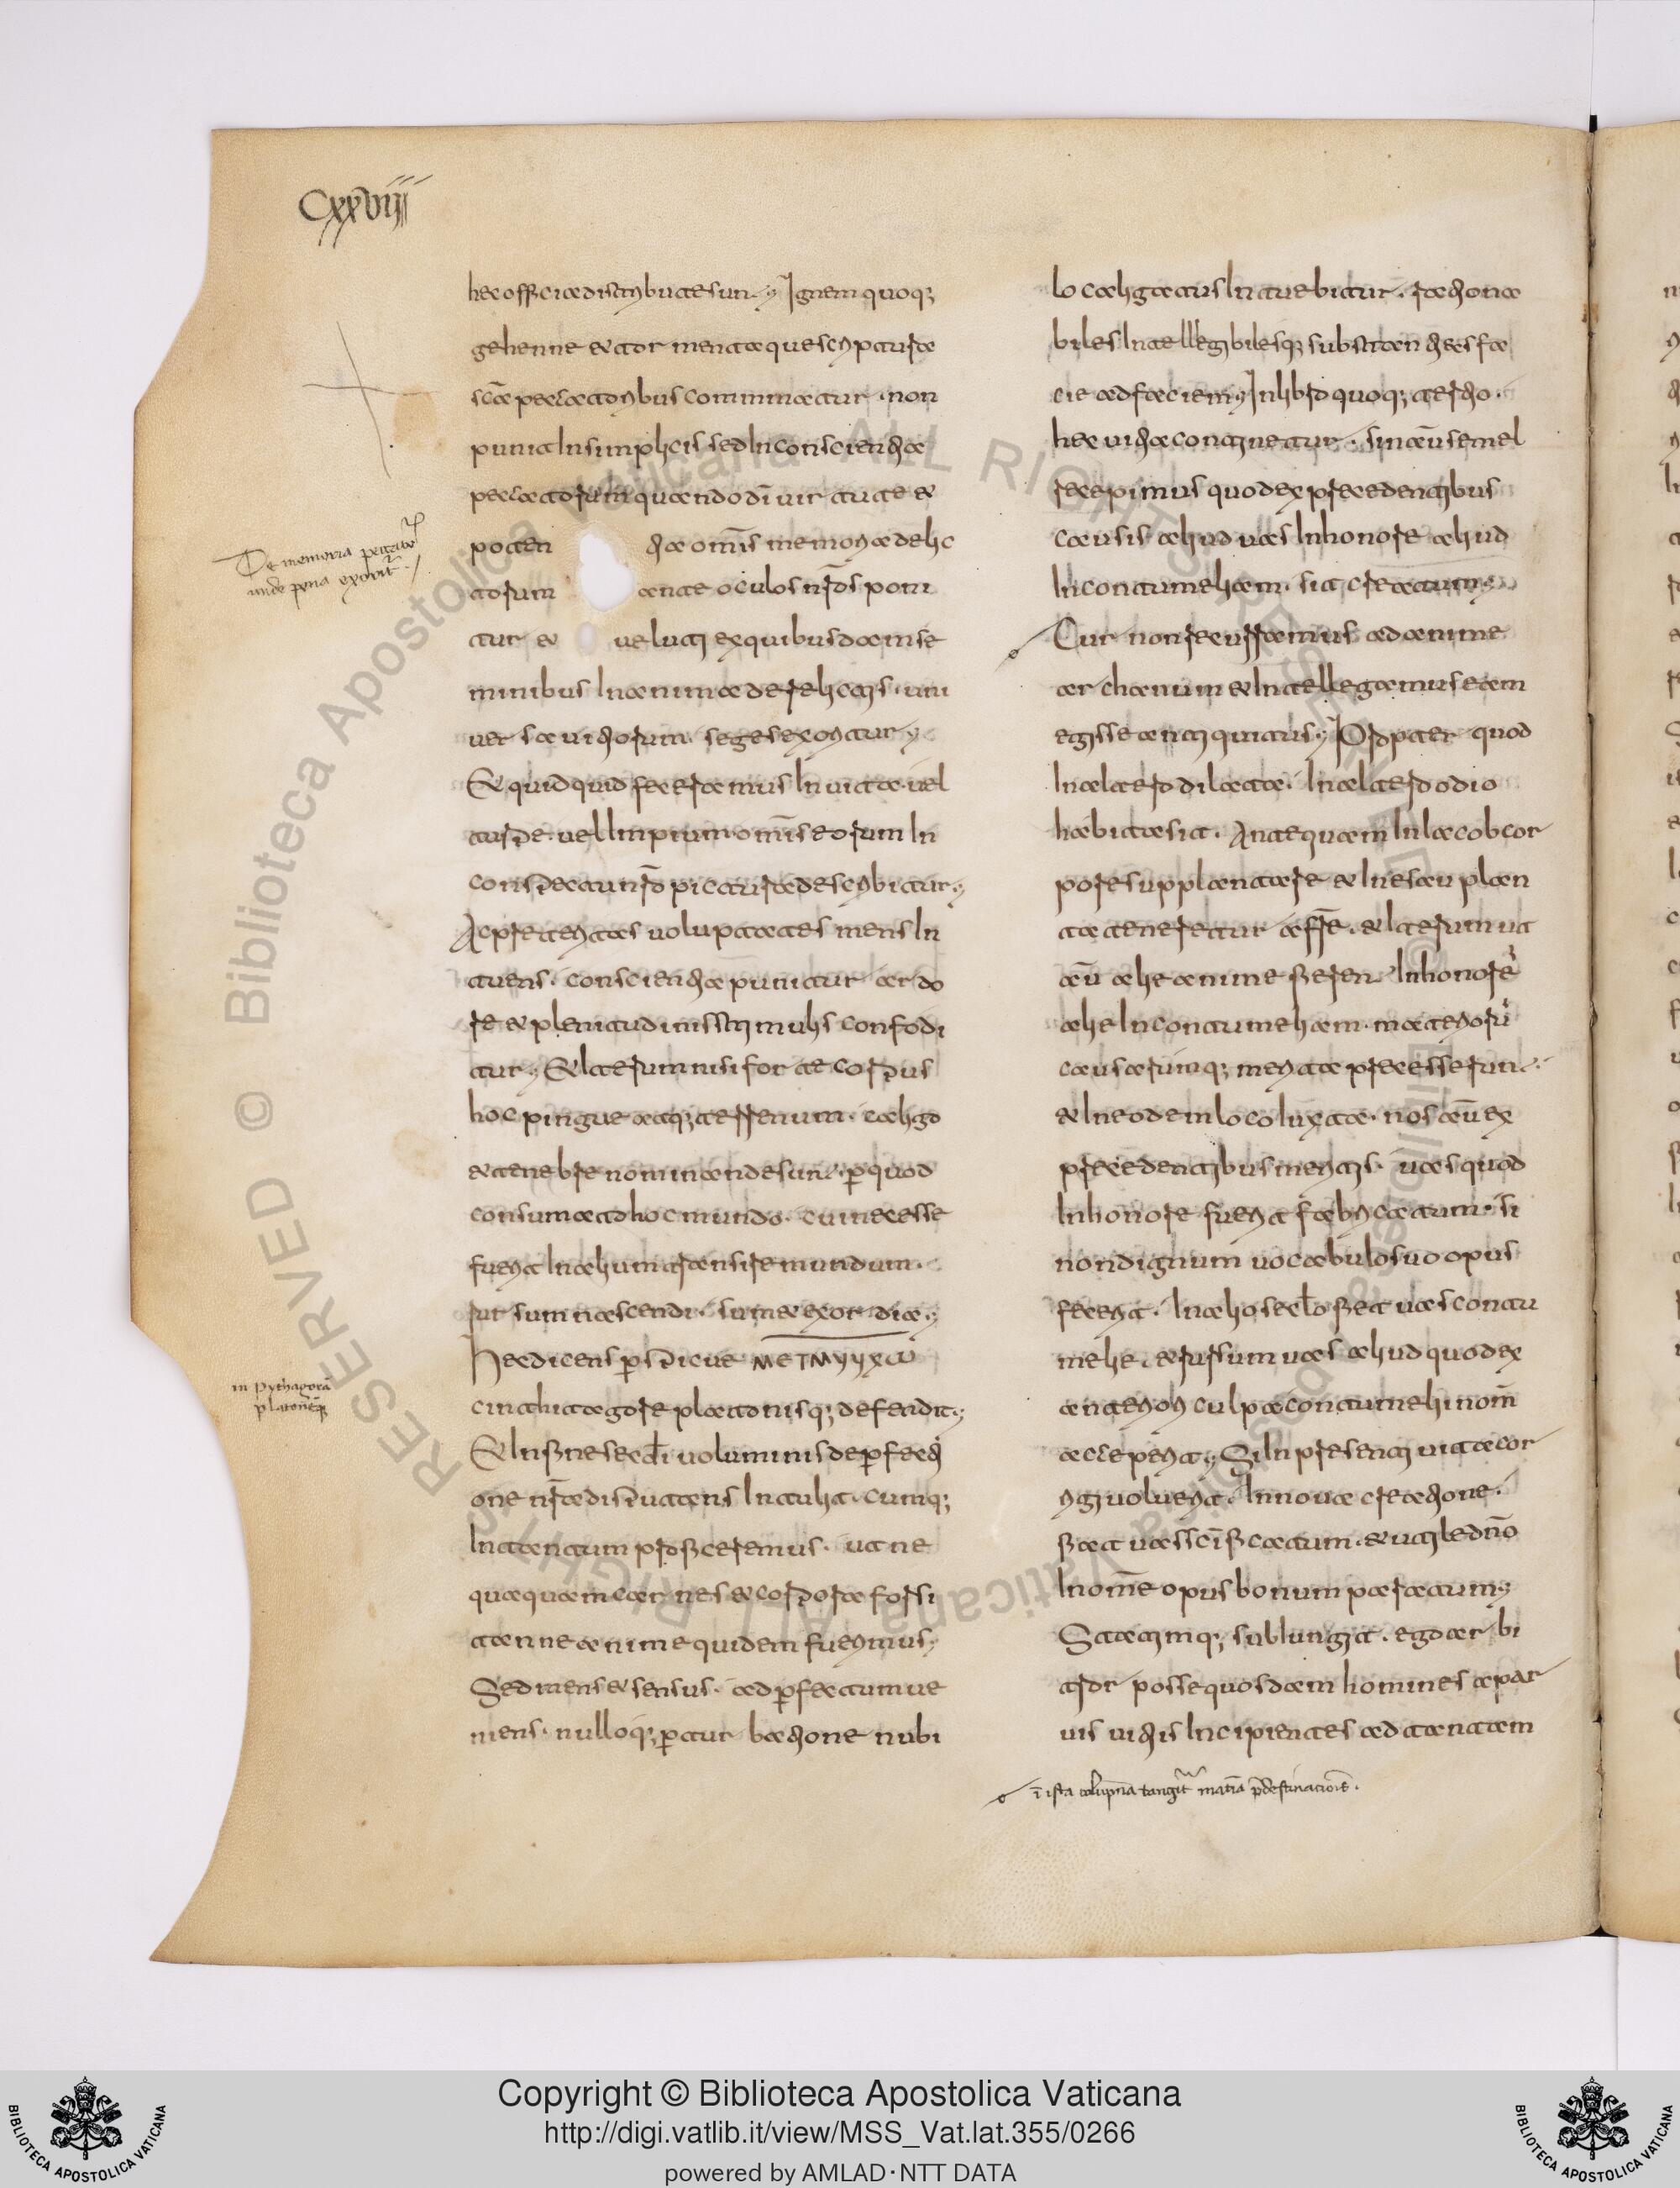 CXXVIIII
hec officia distributa sun. Ignem quoq;
gehenne et tormenta que scriptura
scā peccatoribus comminatur. non
punit in simplicis sed in conscientia
peccatorum quando dī virtute et
poten tia omīs memoria delic
torum ante oculos nr̄os poni
tur et veluti ex quibusdam se
minibus in anima derelictis. uni
versa vitiorum seges exoritur
Et quidquid feceramus in vita. vel
turpe. vel Impium. omīs eorum In
conspectu nr̄o pictura describitur
Ac preteritas voluptates mens In
tuens. conscientia punitur ardo
re et plenitudinis stimulis confodi
tur. Et Iterum nisi forte corpus
hoc pingue atq; terrenum. caligo
et tenebre nominande sun. p̄ quod
consumato hoc mundo. cum necesse
fuerit In alium transire mundum.
rursum nascendi. sumet exordia.
Hec dicens p̄spicue METMYYXω
cinthitagore platonisq; defendit
Et In fine sec̄di voluminis de p̄fecti
one nr̄a disputans Intulit. Cumq;
In tantum profecerimus. ut ne
quaquam carnes et corpora forsi
tan ne anime quidem fuerimus
Sed mens et sensus. ad p̄fectum ve
niens. nulloq; p̄turbatione nubi
De memoria peccator
unde pena exorit̄
in pythagorā
platonēq;
lo caligatus Intuebitur. rationa
biles Intellegibilesq; substantias fa
cie ad faciem. In libro quoq; tertio.
hec vitia continetur. sin aū semel
recepimus quod ex precedentibus
causis aliud vas In honore aliud
In contumeliam. sit creatum.
Cur non recurramus ad anime
archanum et Intellegamus eam
egisse antiquitus. Propter quod
In altero dilecta. In altero odio
habita sit. Antequam In Iacob cor
pore supplantare et In esau plan
ta teneretur a fr̄e. et Iterum ut
aū alie anime fieren In honore
alie In contumeliam. materioru
causarumq; merita precesserun.
et In eodem loco Iuxta. nos aū ex
precedentibus meritis. vas quod
In honore fuerit fabricatum. si
non dignum vocabulo suo opus
fecerit. In alio sec̄lo fiet vas contu
melie. et rursum vas aliud quod ex
anteriori culpa contumelie nom̄
acceperit. Si In presenti vita cor
rigi voluerit. In nova creatione.
fiet vas sc̄ificatum. et utile dn̄o
In om̄e opus bonum paratum
Statimq; subIungit. ego arbi
tror posse quosdam homines a par
vis vitiis Incipientes ad tantam
ī ista colupna tangit̄ mat̄ia p̄destinacionis.
Copyright © Biblioteca Apostolica Vaticana
http://digi.vatlib.it/view/MSS_Vat.lat.355/0266
powered by AMLAD·NTT DATA
BIBLIOTECA APOSTOLICA VATICANA
BIBLIOTECA APOSTOLICA VATICANA
© Biblioteca Apostolica Vaticana ALL RIGHTS RESERVED